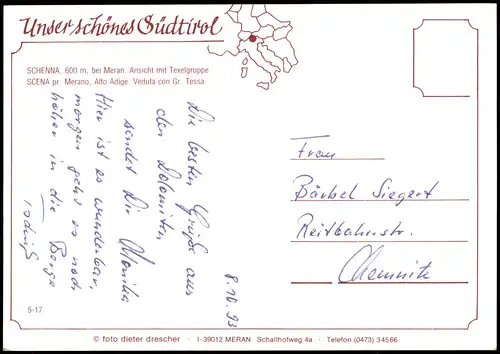 Unser schönes Südtirol
SCHENNA, 600 m, bei Meran. Ansicht mit Texelgruppe
SCENA pr. Merano, Alto Adige. Veduta con Gr. Tessa
8.10.93
Die besten Grüße aus
den Dolomiten
sendet Dir Monika
Hier ist es wunderbar,
morgen geht es noch
höher in die Berge
Frau
Bärbel Siegert
Reitbahnstr.
Chemnitz
5-17
© foto dieter drescher · I-39012 MERAN Schallhofweg 4a · Telefon (0473) 34566